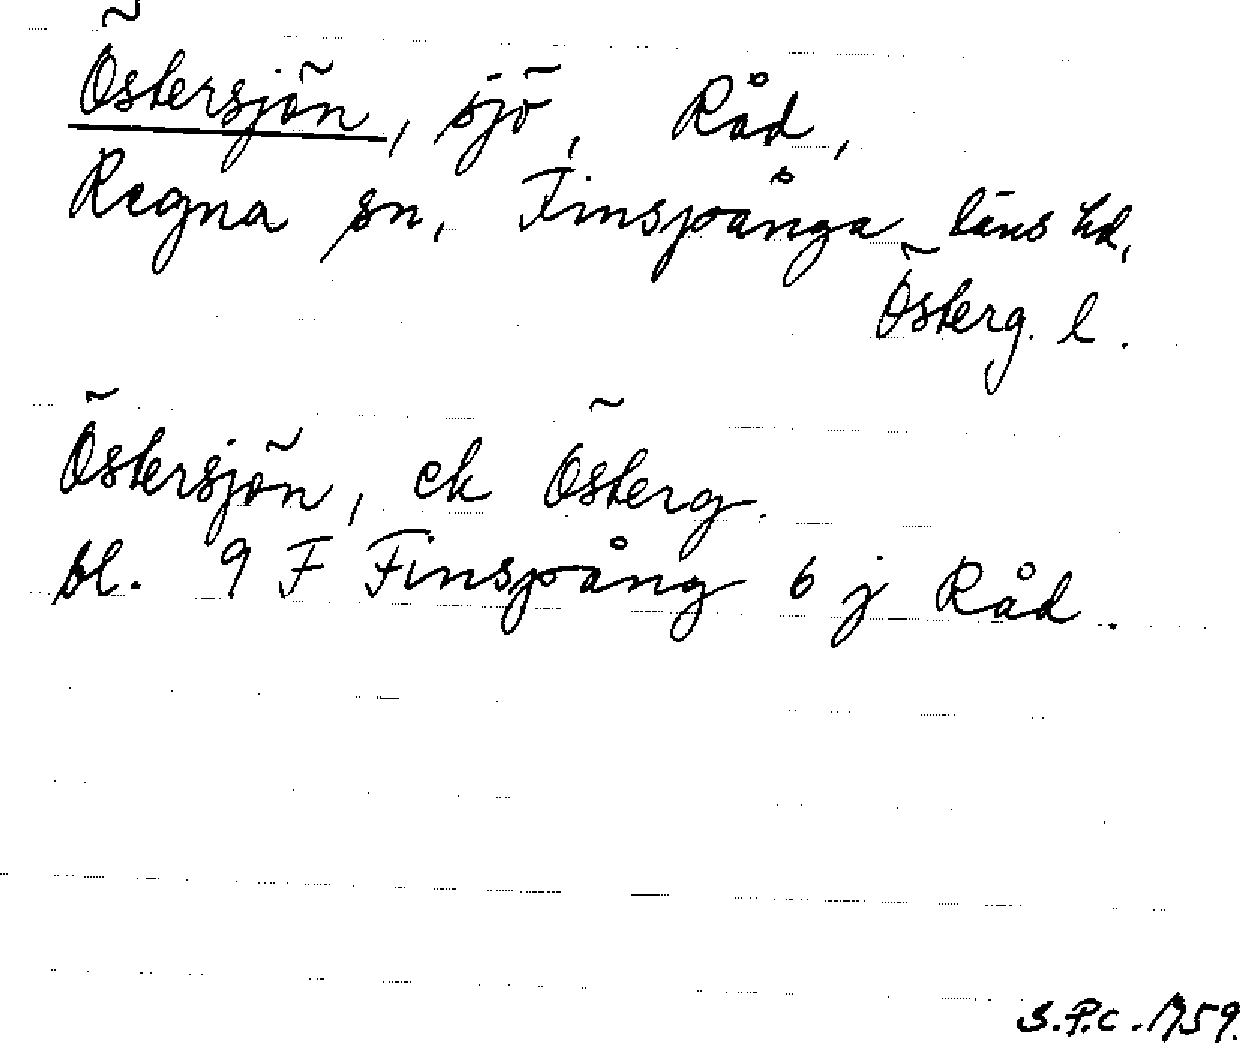 Östersjön, sjö, Råd,
Regna sn, Finspånga läns hd,
Österg. l.
Östersjön, ek Österg.
bl. 9 F Finspång 6 j Råd.
S.P.C. 1959.